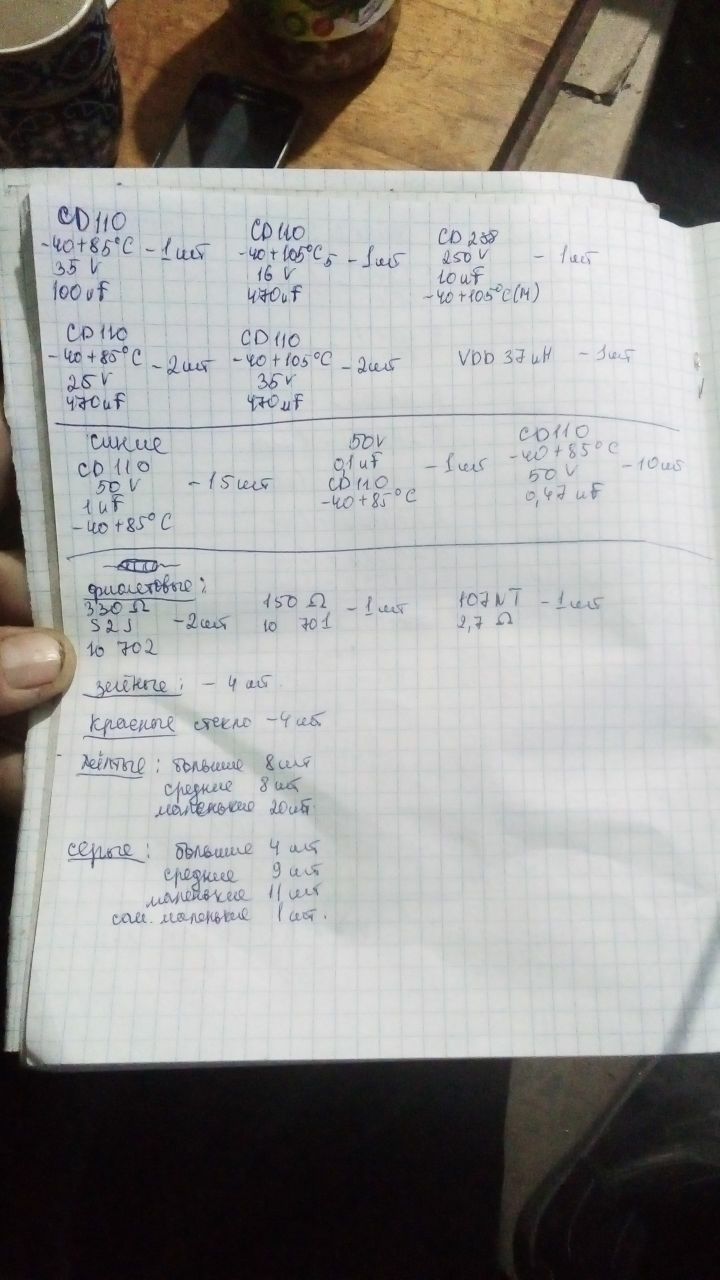 CD110
-40+85°C - 1 шт
35 V
100 uF
CD110
-40+105°C - 1 шт
16 V
470uF
CD 288
250 V - 1 шт
10 uF
-40+105°C(M)
CD110
-40+85°C - 2 шт
25 V
470 uF
CD110
-40+105°C - 2 шт
35 V
470 uF
VDD 37 uH - 1 шт
синие
CD 110
50 V - 15 шт
1 uF
-40+85°C
50V
0,1 uF - 1 шт
CD110
-40+85°C
CD110
-40+85°C
50 V - 10 шт
0,47 uF
фиолетовые:
330 Ω
S2J - 2 шт
10 702
150 Ω - 1 шт
10 701
107NT - 1 шт
2,7 Ω
зелёные: - 4 шт.
красные стекло - 4 шт
жёлтые: большие 8 шт
средние 8 шт
маленькие 20 шт.
серые: большие 4 шт
средние 9 шт
маленькие 11 шт
сам. маленькие 1 шт.